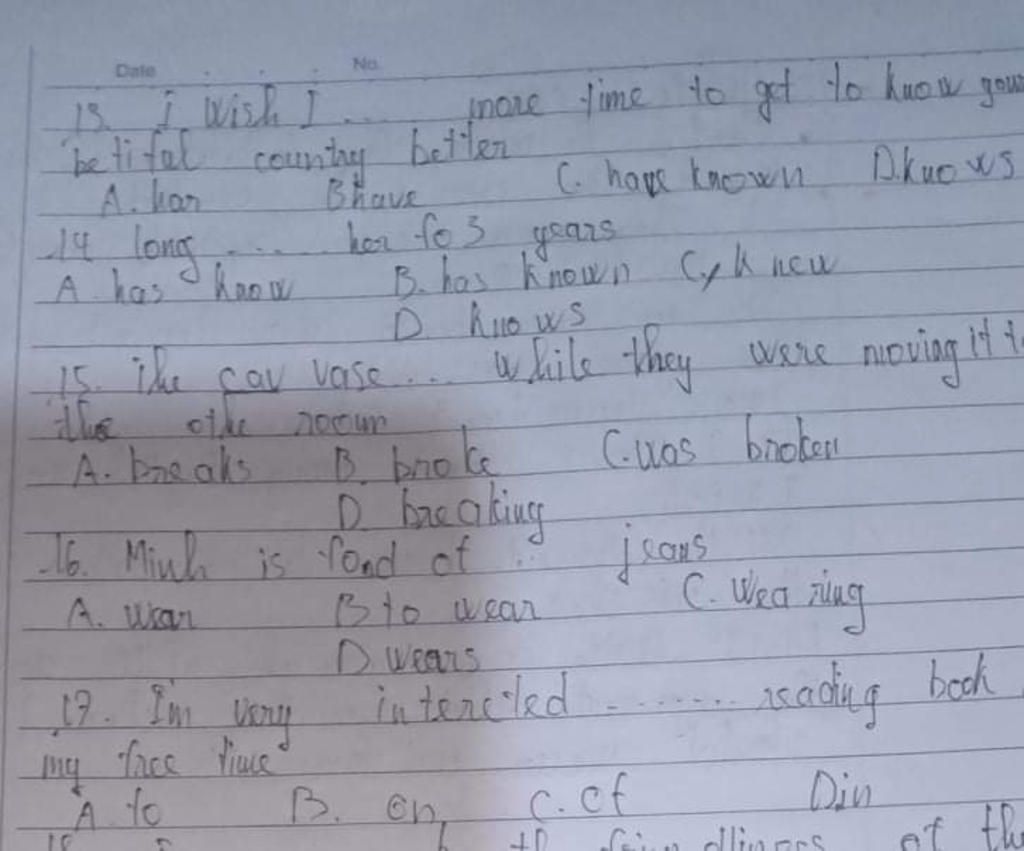 Date No.
13. I wish I .... more time to get to know your
betiful country better
A. har B have C. have known D. knows
14 long .... her fo 3 years
A. has know B. has known C, knew
D. knows
15. The cav vase ... while they were moving it to
the othe room
A. breaks B. broke C. was broken
D. breaking
16. Minh is fond of ... jeans
A. wear B to wear C. Wearing
D wears
17. I'm very interected ....... reading book
my free time
A. to B. on, C. of D in
of the